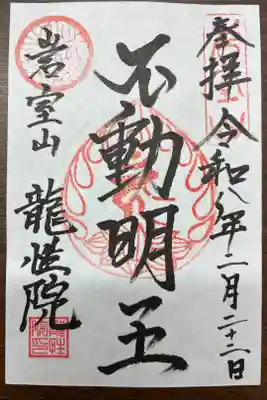 奉拝 令和八年二月二十二日
不動明王
岩室山 龍性院